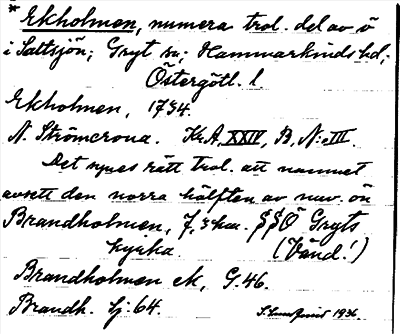 * Ekholmen, numera trol. del av ö
i Saltsjön; Gryt sn; Hammarkinds hd;
Östergötl. l
Ekholmen, 1734.
N. Strömcrona. Kr.A, XXIV, B, N:o III.
Det synes rätt trol. att namnet
avsett den norra hälften av nuv. ön
Brandholmen, 7,3 km. SSÖ Gryts
kyrka. (Vänd!)
Brandholmen ek, G. 46.
Brandh. Sj: 64. 1936.